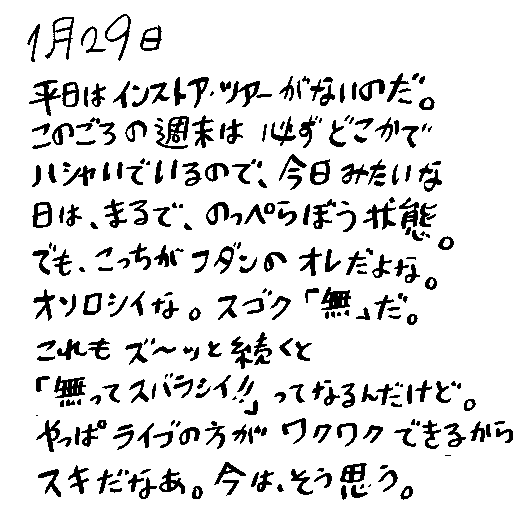 1月29日
平日はインストア・ツアーがないのだ。
このごろの週末は必ずどこかで
ハシャいでいるので、今日みたいな
日は、まるで、のっぺらぼう状態。
でも、こっちがフダンのオレだよな。
オソロシイな。スゴク「無」だ。
これもズ〜ッと続くと
「無ってスバラシイ!!」ってなるんだけど。
やっぱライブの方がワクワクできるから
スキだなあ。今は、そう思う。